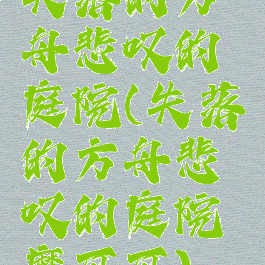 失落的方
舟悲叹的
庭院(失落
的方舟悲
叹的庭院